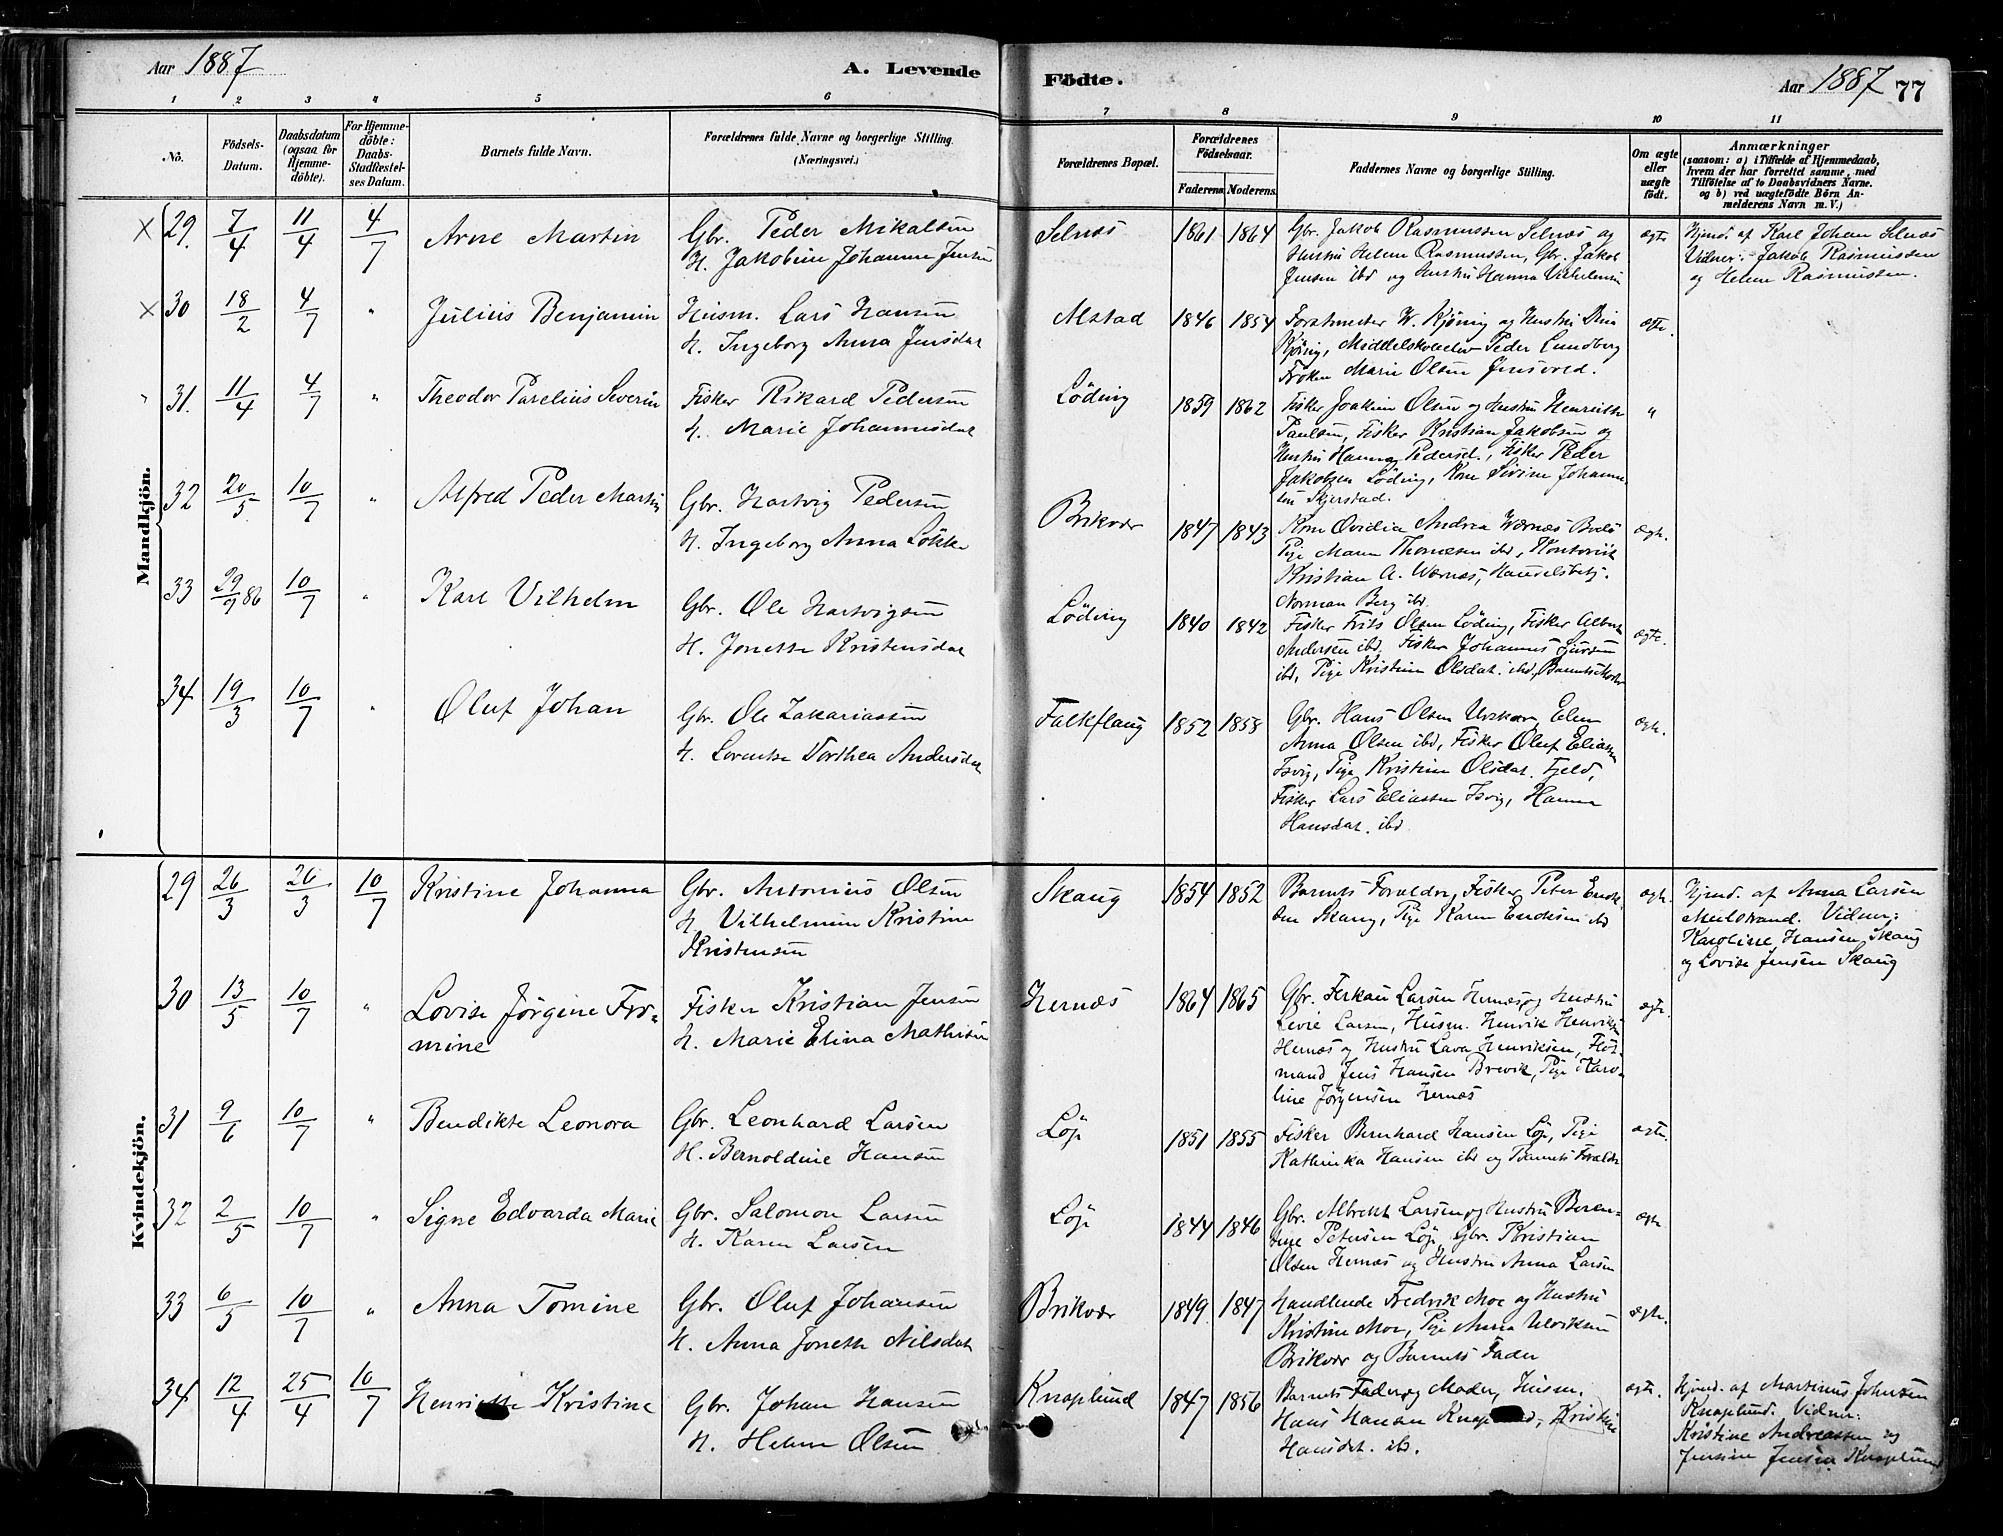 Aar 1887
A. Levende
Födte.
Aar 1887
77
1 2 3 4 5 6 7 8 9 10 11
No.
Födsels-
Datum.
Daabsdatum
(ogsaa for
Hjemme-
döbte).
For Hjemme-
döbte:
Daabs-
Stadfæstel-
ses Datum.
Barnets fulde Navn.
Forældrenes fulde Navne og borgerlige Stilling.
(Næringsvei.)
Forældrenes Bopæl.
Forældrenes
Födselsaar.
Faderens. Moderens.
Faddernes Navne og borgerlige Stilling.
Om ægte
eller
uægte
födt.
Anmærkninger
(saasom: a) i Tilfælde af Hjemmedaab,
hvem der har forrettet samme, med
Tilföielse af to Daabsvidners Navne.
og b) ved uægtefödte Börn An-
melderens Navn m. V.)
Mandkjön.
X 29. 7/4 11/4 4/7 Arne Martin
Gbr. Peder Mikalsen
H. Jakobine Johanna Jensen
Selnæs 1861 1864
Gbr. Jakob Rasmussen Selnæs og
Hustru Helene Rasmussen, Gbr. Jakob
Jensen ibd og Hustru Hanna Vilhelmsen
ægte
Hjmd. af Karl Johan Selnæs
Vidner: Jakob Rasmussen
og Helene Rasmussen.
X 30 18/2 4/7 " Julius Benjamin
Husm. Lars Hansen
H. Ingeborg Anna Jensdat
Alstad 1846 1854
Forstmester W. Kjönig og Hustru Dina
Kjönig, Middelskoleelev Peder Lundberg
Fröken Marie Olsen Jensvold.
ægte.
31. 11/4 4/7 " Theodor Parelius Severin
Fisker Rikard Pedersen
H. Marie Johannesdat
Löding 1859 1862
Fisker Joakim Olsen og Hustru Henriette
Paulsen, Fisker Kristian Jakobsen og
Hustru Hanna Pedersd., Fisker Peder
Jakobsen Löding, Kone Sirine Johanne-
sen Skjerstad.
"
32 20/5 10/7 " Alfred Peder Martin
Gbr. Hartvig Pedersen
H. Ingeborg Anna Lökke
Brikvær 1847 1843
Kone Ovidia Andrea Wærnæs Bodö
Pige Maren Thomesen ibd, Kontorist
Kristian A. Wærnæs, Handelsbetj.
Norman Berg ibd
ægte.
33 29/9 86 10/7 " Karl Vilhelm
Gbr. Ole Hartvigsen
H. Jonette Kristensdat
Löding 1840 1842
Fisker Frits Olsen Löding, Fisker Albert
Andersen ibd, Fisker Johannes
ibd, Pige Kristine Olsdat. ibd, Barnets Moder
ægte.
34 19/3 10/7 " Oluf Johan
Gbr. Ole Zakariassen
H. Lorentse Dorthea Andersdat
Falkflaug 1852 1858
Gbr. Hans Olsen Elen
Anna Olsen ibd, Fisker Oluf Eliassen
Isvig, Pige Kristine Olsdat. Fjeld,
Fisker Lars Eliassen Isvig, Hanna
Hansdat. ibd.
ægte.
Kvindekjön.
29 26/3 26/3 10/7 Kristine Johanna
Gbr. Antonius Olsen
H. Vilhelmine Kristine
Kristensen
Skaug 1854 1852
Barnets Forældre, Fisker Peter Erik-
sen Skaug, Pige Karen Eriksen ibd
ægte.
Hjmd. af Anna Larsen
Meilstrand. Vidner:
Karoline Hansen Skaug
og Lovise Jensen Skaug
30 13/5 10/7 " Lovise Jørgine Fro-
mine
Fisker Kristian Jensen
H. Marie Elina Mathisen
Hernæs 1864 1865
Gbr. Larsen Hernæs og Hustru
Larsen, Husm. Henrik Henriksen
Hernæs og Hustru Lava Henriksen, Hus-
mand Jens Hansen Brevik, Pige Karo-
line Jörgensen Hernæs
ægte.
31 9/6 10/7 " Bendikte Leonora
Gbr. Leonhard Larsen
H. Bernoldine Hansen
Löp 1851 1855
Fisker Bernhard Hansen Löp, Pige
Kathinka Hansen ibd og Barnets Forældre
ægte.
32 2/5 10/7 " Signe Edvarda Marie
Gbr. Salomon Larsen
H. Karen Larsen
Löp 1844 1846
Gbr. Albrekt Larsen og Hustru Beren-
tine Petersen Löp, Gbr. Kristian
Olsen Hernæs og Hustru Anna Larsen
ægte
33 6/5 10/7 " Anna Tomine
Gbr. Oluf Johansen
H. Anna Jonette Nilsdat
Brikvær 1849 1847
Handlende Fredrik Moe og Hustru
Kristine Moe, Pige Anna Ulriksen
Brikvær og Barnets Fader
ægte.
34 12/4 25/4 10/7 Henriette Kristine
Gbr. Johan Hansen
H. Helene Olsen
Knaplund 1847 1856
Barnets Fader og Moder, Husm.
Hans Hansen Knaplund, Kristine
Hansdat. ibd.
ægte.
Hjmd. af Martinus Johnsen
Knaplund. Vidner:
Kristine Andreassen og
Jensine Jensen Knaplund